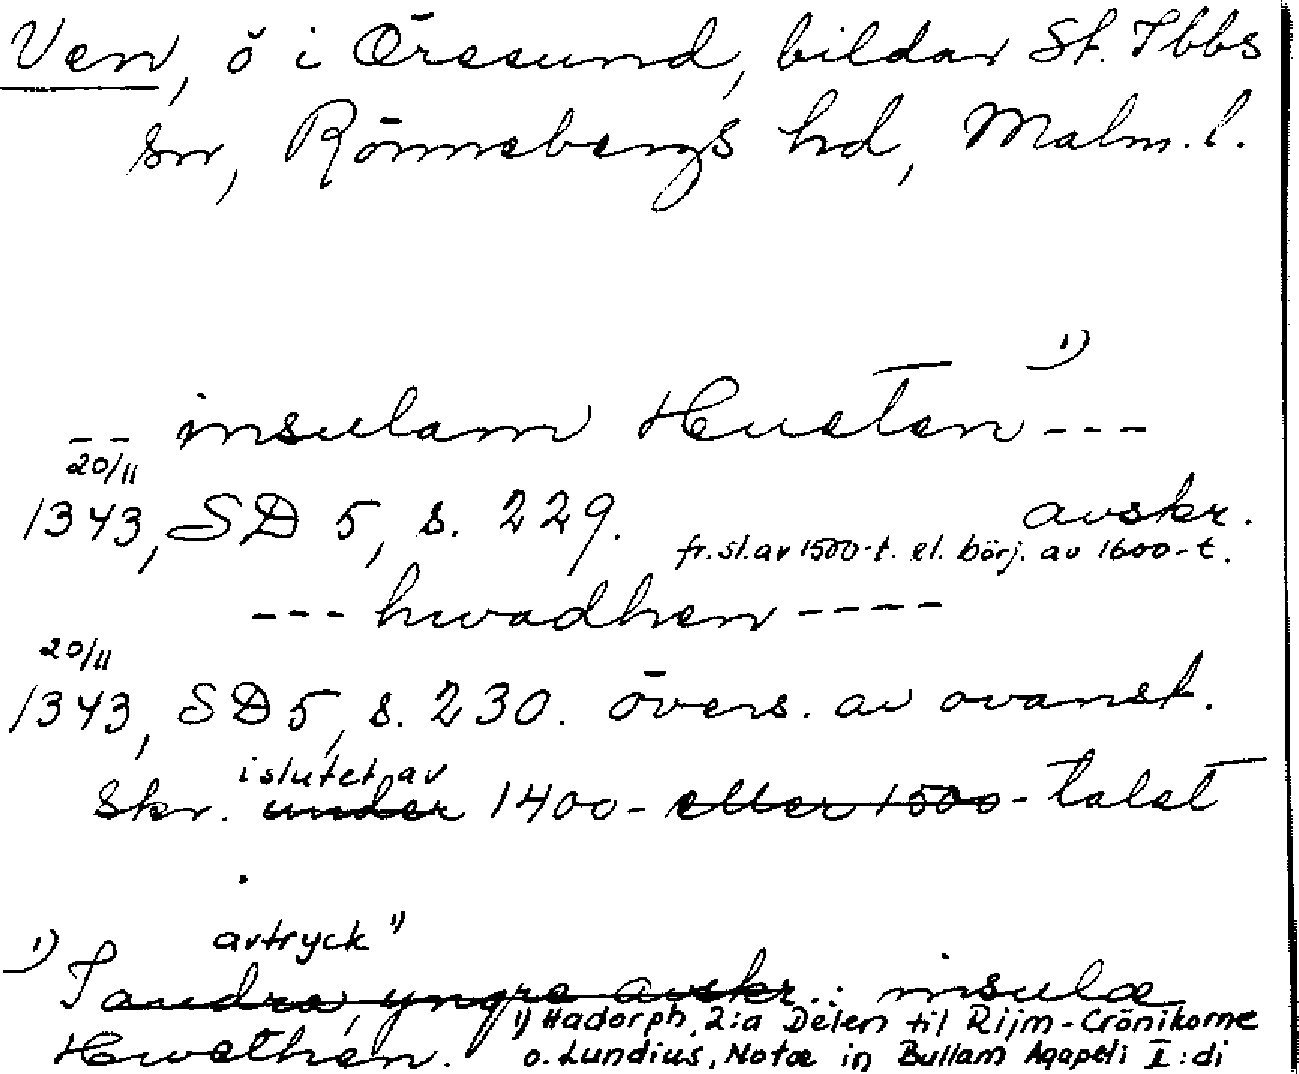 Ven, ö i Öresund, bildar St. Ibbs
sn, Rönnebergs hd, Malm. l.
-- insulam Hueten --- 1)
20/11
1343, SD 5, s. 229. avskr.
fr. sl. av 1500-t. el. börj. av 1600-t.
--- hwadhen ----
20/11
1343, SD 5, s. 230. övers. av ovanst.
i slutet av
skr. under 1400- eller 1500- talet
avtryck 1)
1) I andra, yngre avskr.: insulæ
1) Hadorph, 2:a Delen til Rijm-Crönikorne
Hwethen. o. Lundius, Notæ in Bullam Agapeti II:di